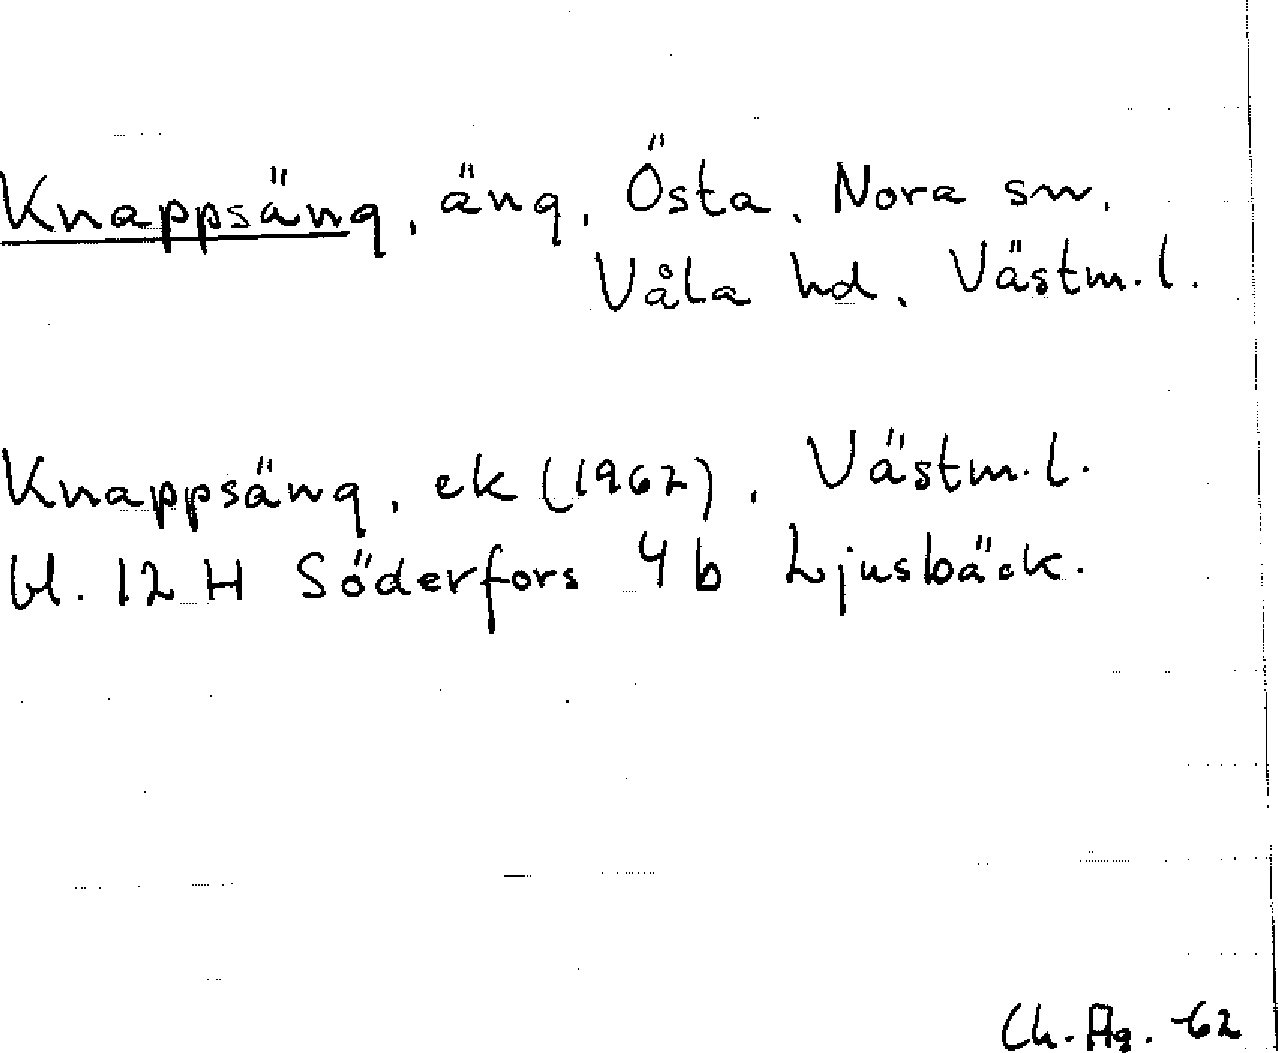 Knappsäng, äng, Östa, Nora sn,
Våla hd, Västm. l.
Knappsäng, ek (1962), Västm. l.
bl. 12 H Söderfors 4 b Ljusbäck.
Ch. Ag. -62